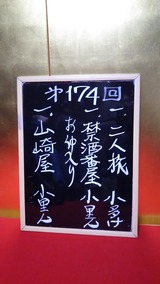 第174回
一、二人旅 小多け
一、禁酒番屋 小里ん
お仲入り
一、山崎屋 小里ん